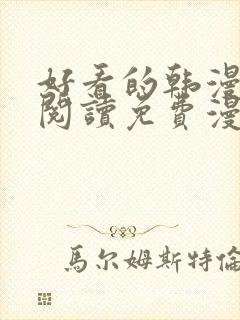 好看的韩漫
閱讀免費漫
馬尔姆斯特倫